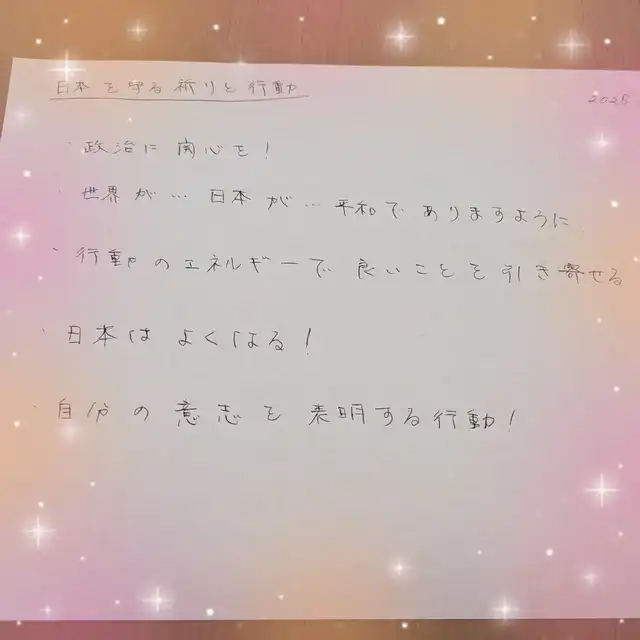 日本を守る祈りと行動
2025
・政治に関心を！
・世界が…日本が…平和でありますように
・行動のエネルギーで良いことを引き寄せる
・日本はよくなる！
・自分の意志を表明する行動！